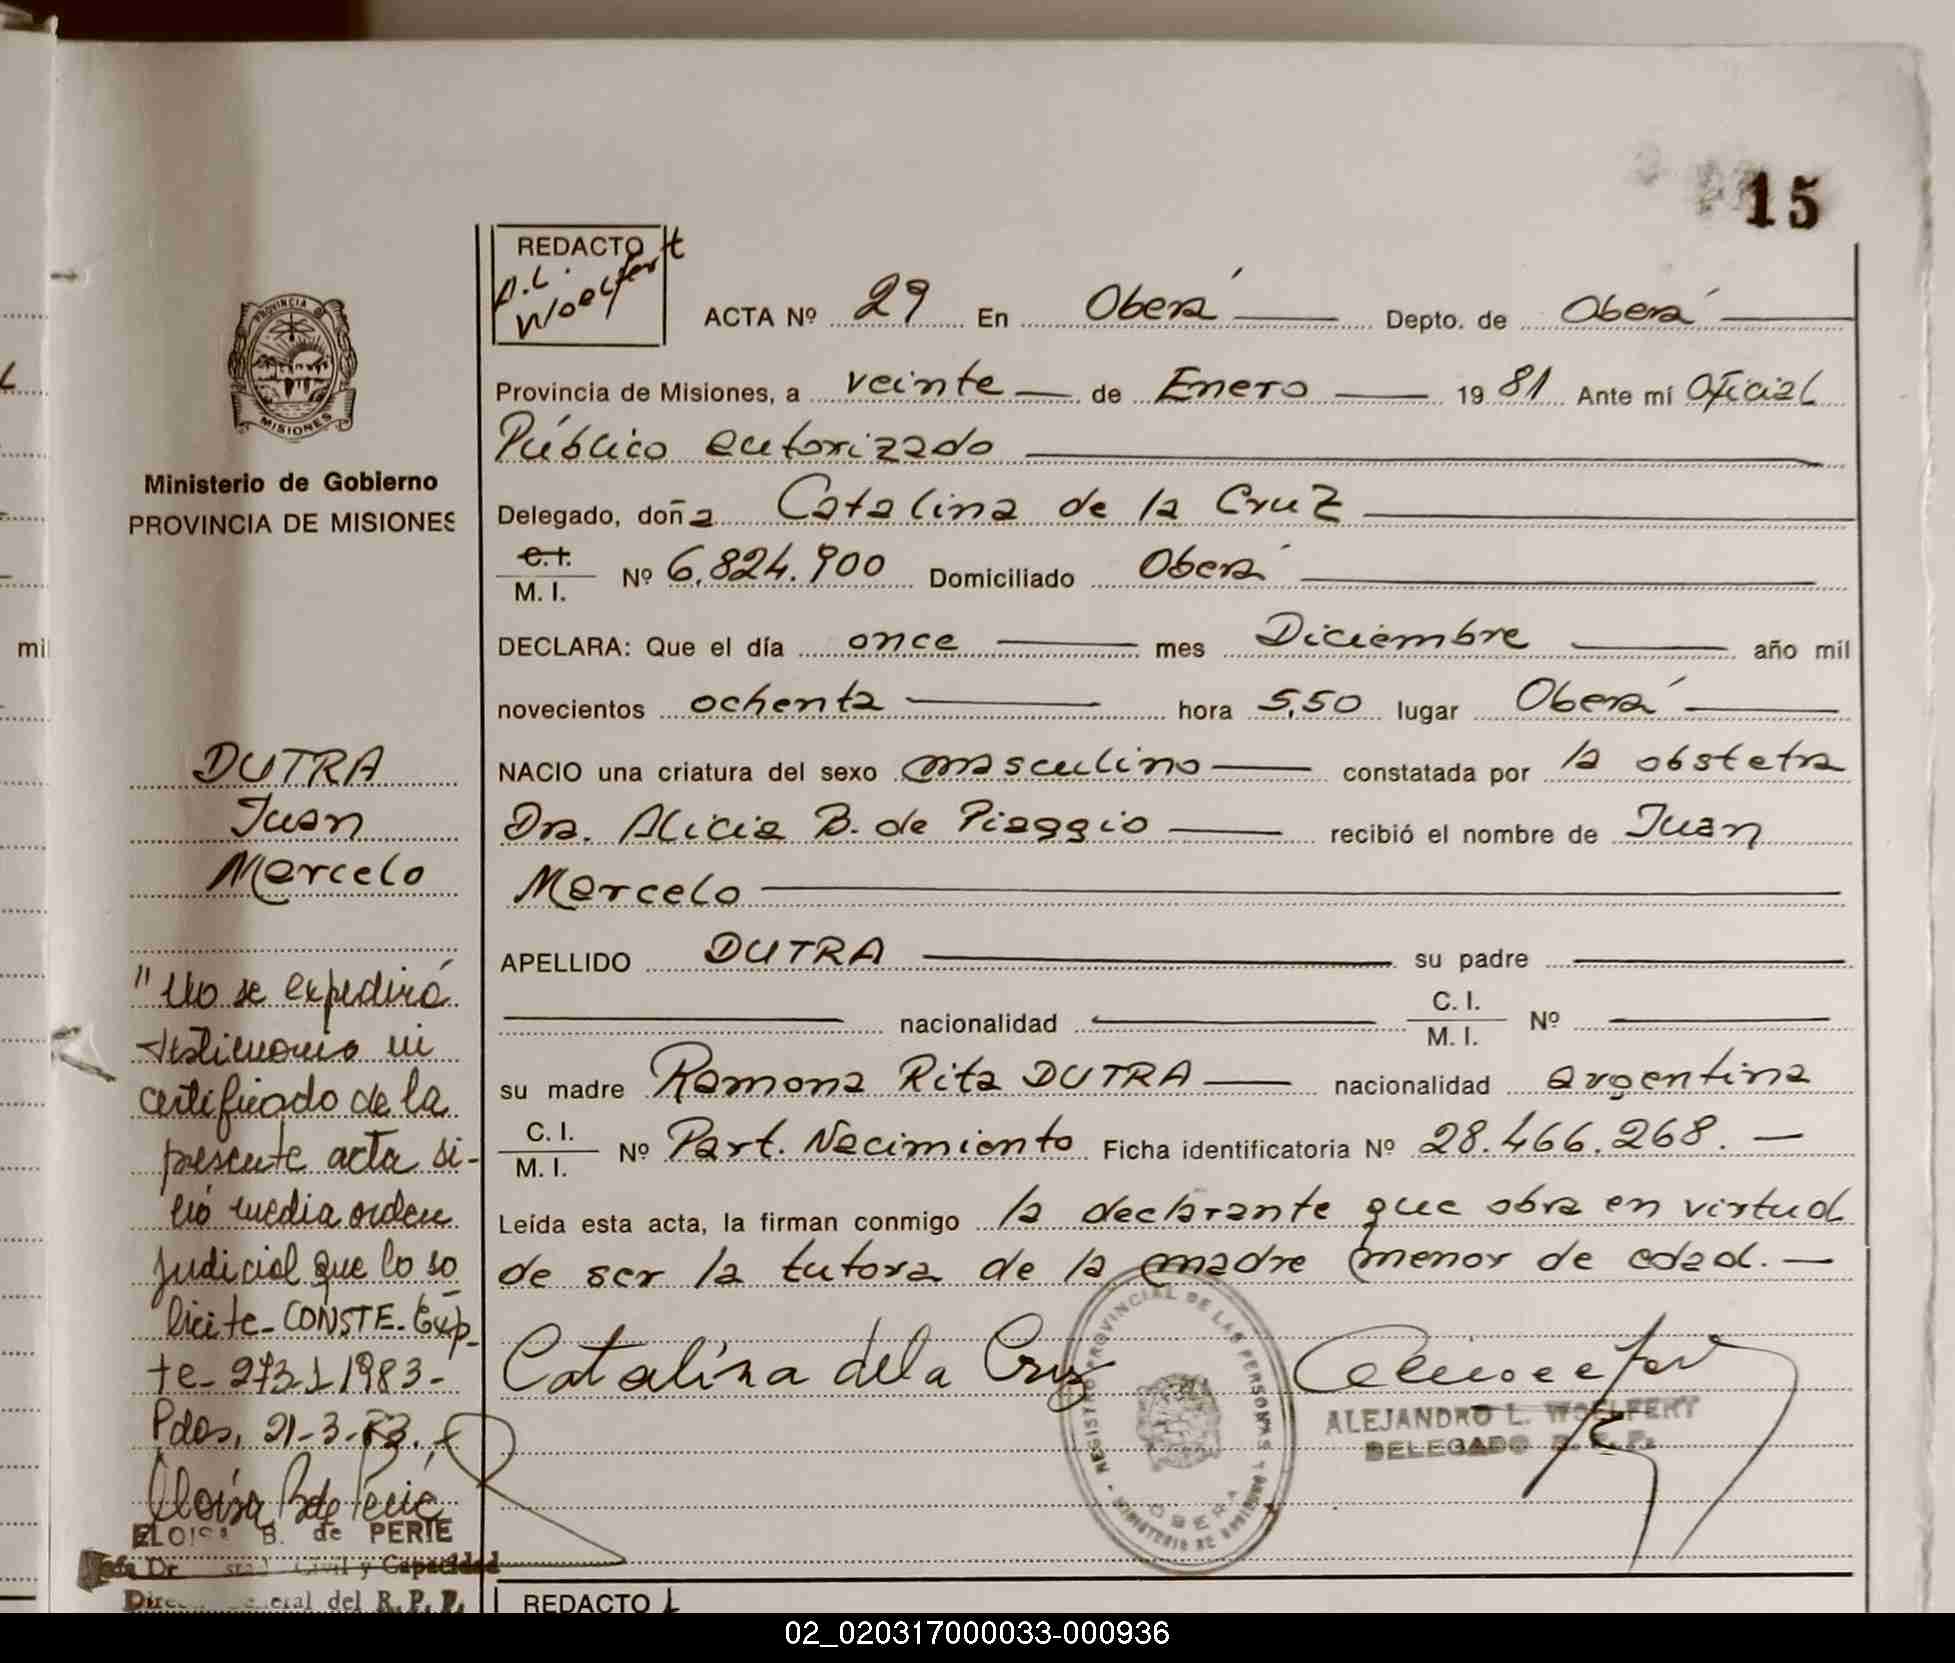 15
REDACTO
A.L. Woelfert
ACTA Nº 29 En Oberá Depto. de Oberá
Provincia de Misiones, a veinte de Enero 1981 Ante mí Oficial
Público autorizado
Delegado, doña Catalina de la Cruz
C.I. M.I. Nº 6.824.900 Domiciliado Oberá
DECLARA: Que el día once mes Diciembre año mil
novecientos ochenta hora 5,50 lugar Oberá
NACIO una criatura del sexo masculino constatada por la obstetra
Dra. Alicia B. de Piaggio recibió el nombre de Juan
Marcelo
APELLIDO DUTRA su padre
nacionalidad C. I. M. I. Nº
su madre Ramona Rita DUTRA nacionalidad argentina
C. I. M. I. Nº Part. Nacimiento Ficha identificatoria Nº 28.466.268.
Leída esta acta, la firman conmigo la declarante que obra en virtud
de ser la tutora de la madre menor de edad.
Catalina de la Cruz
ALEJANDRO L. WOELFERT
DELEGADO R. P. P.
REGISTRO PROVINCIAL DE LAS PERSONAS
OBERA
PROVINCIA
MISIONES
Ministerio de Gobierno
PROVINCIA DE MISIONES
DUTRA
Juan
Marcelo
"No se expedirá
testimonio ni
certificado de la
presente acta si-
nó media orden
judicial que lo so
licite- CONSTE- Exp-
te-
Pdas, 21-3-83.
Eloísa B de Perié
ELOISA B. de PERIE
Civil y Capacidad
del R. P. P.
REDACTO
mil
02_020317000033-000936